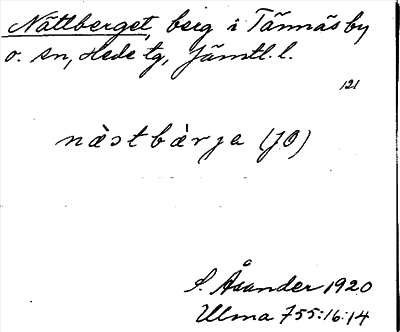 Nättberget, berg i Tännäs by
o. sn, Hede tg, Jämtl. l.
121
nästbärja (JO)
S. Åsander 1920
Ulma 755:16:14